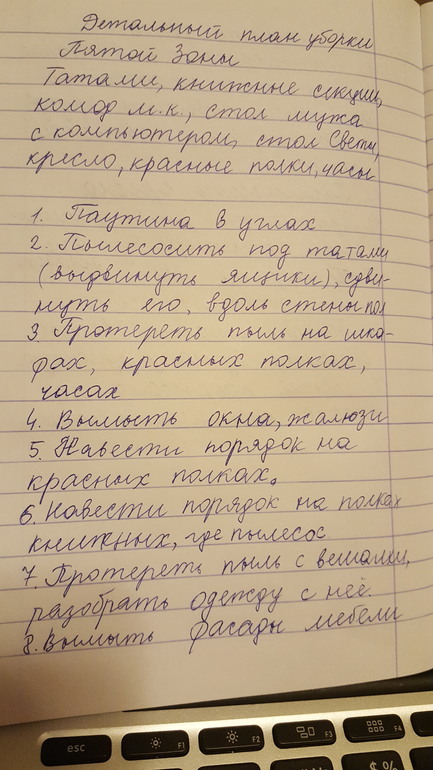 Детальный план уборки
Пятой Зоны
Татами, книжные секции,
комод м.к., стол мужа
с компьютером, стол Светы,
кресло, красные полки, часы
1. Паутина в углах
2. Пылесосить под татами
(выдвинуть ящики), сдви-
нуть его, вдоль стены пол
3. Протереть пыль на шка-
фах, красных полках,
часах
4. Вымыть окна, жалюзи
5. Навести порядок на
красных полках.
6. Навести порядок на полках
книжных, где пылесос
7. Протереть пыль с вешалки,
разобрать одежду с неё.
8. Вымыть фасады мебели
esc F1 F2 F3 F4
$ %